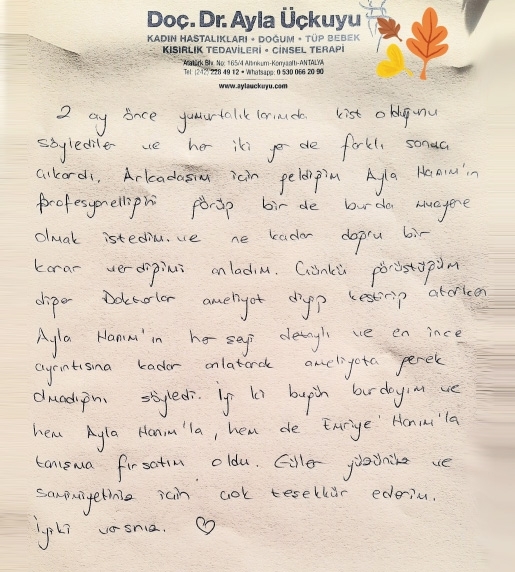 Doç. Dr. Ayla Üçkuyu
KADIN HASTALIKLARI • DOĞUM • TÜP BEBEK
KISIRLIK TEDAVİLERİ • CİNSEL TERAPİ
Atatürk Blv. No: 165/4 Altınkum-Konyaaltı-ANTALYA
Tel: (242) 228 49 12 • Whatsapp: 0 530 066 20 90
www.aylauckuyu.com
2 ay önce yumurtalıklarımda kist olduğunu
söylediler ve her iki yer de farklı sonda
çıkardı. Arkadaşım için geldiğim Ayla Hanım'ın
Profesyonelliğini görüp bir de burda muayene
olmak istedim. ve ne kadar doğru bir
karar verdiğimi anladım. Çünkü görüştüğüm
diğer Doktorlar ameliyat diyip kestirip atarken
Ayla Hanım'ın her şeyi detaylı ve en ince
ayrıntısına kadar anlatarak ameliyata gerek
olmadığını söyledi. İyi ki bugün burdayım ve
hem Ayla Hanım'la, hem de Emriye Hanım'la
tanışma fırsatım oldu. Güler yüzünüz ve
samimiyetiniz için çok teşekkür ederim.
İyiki varsınız. ♡